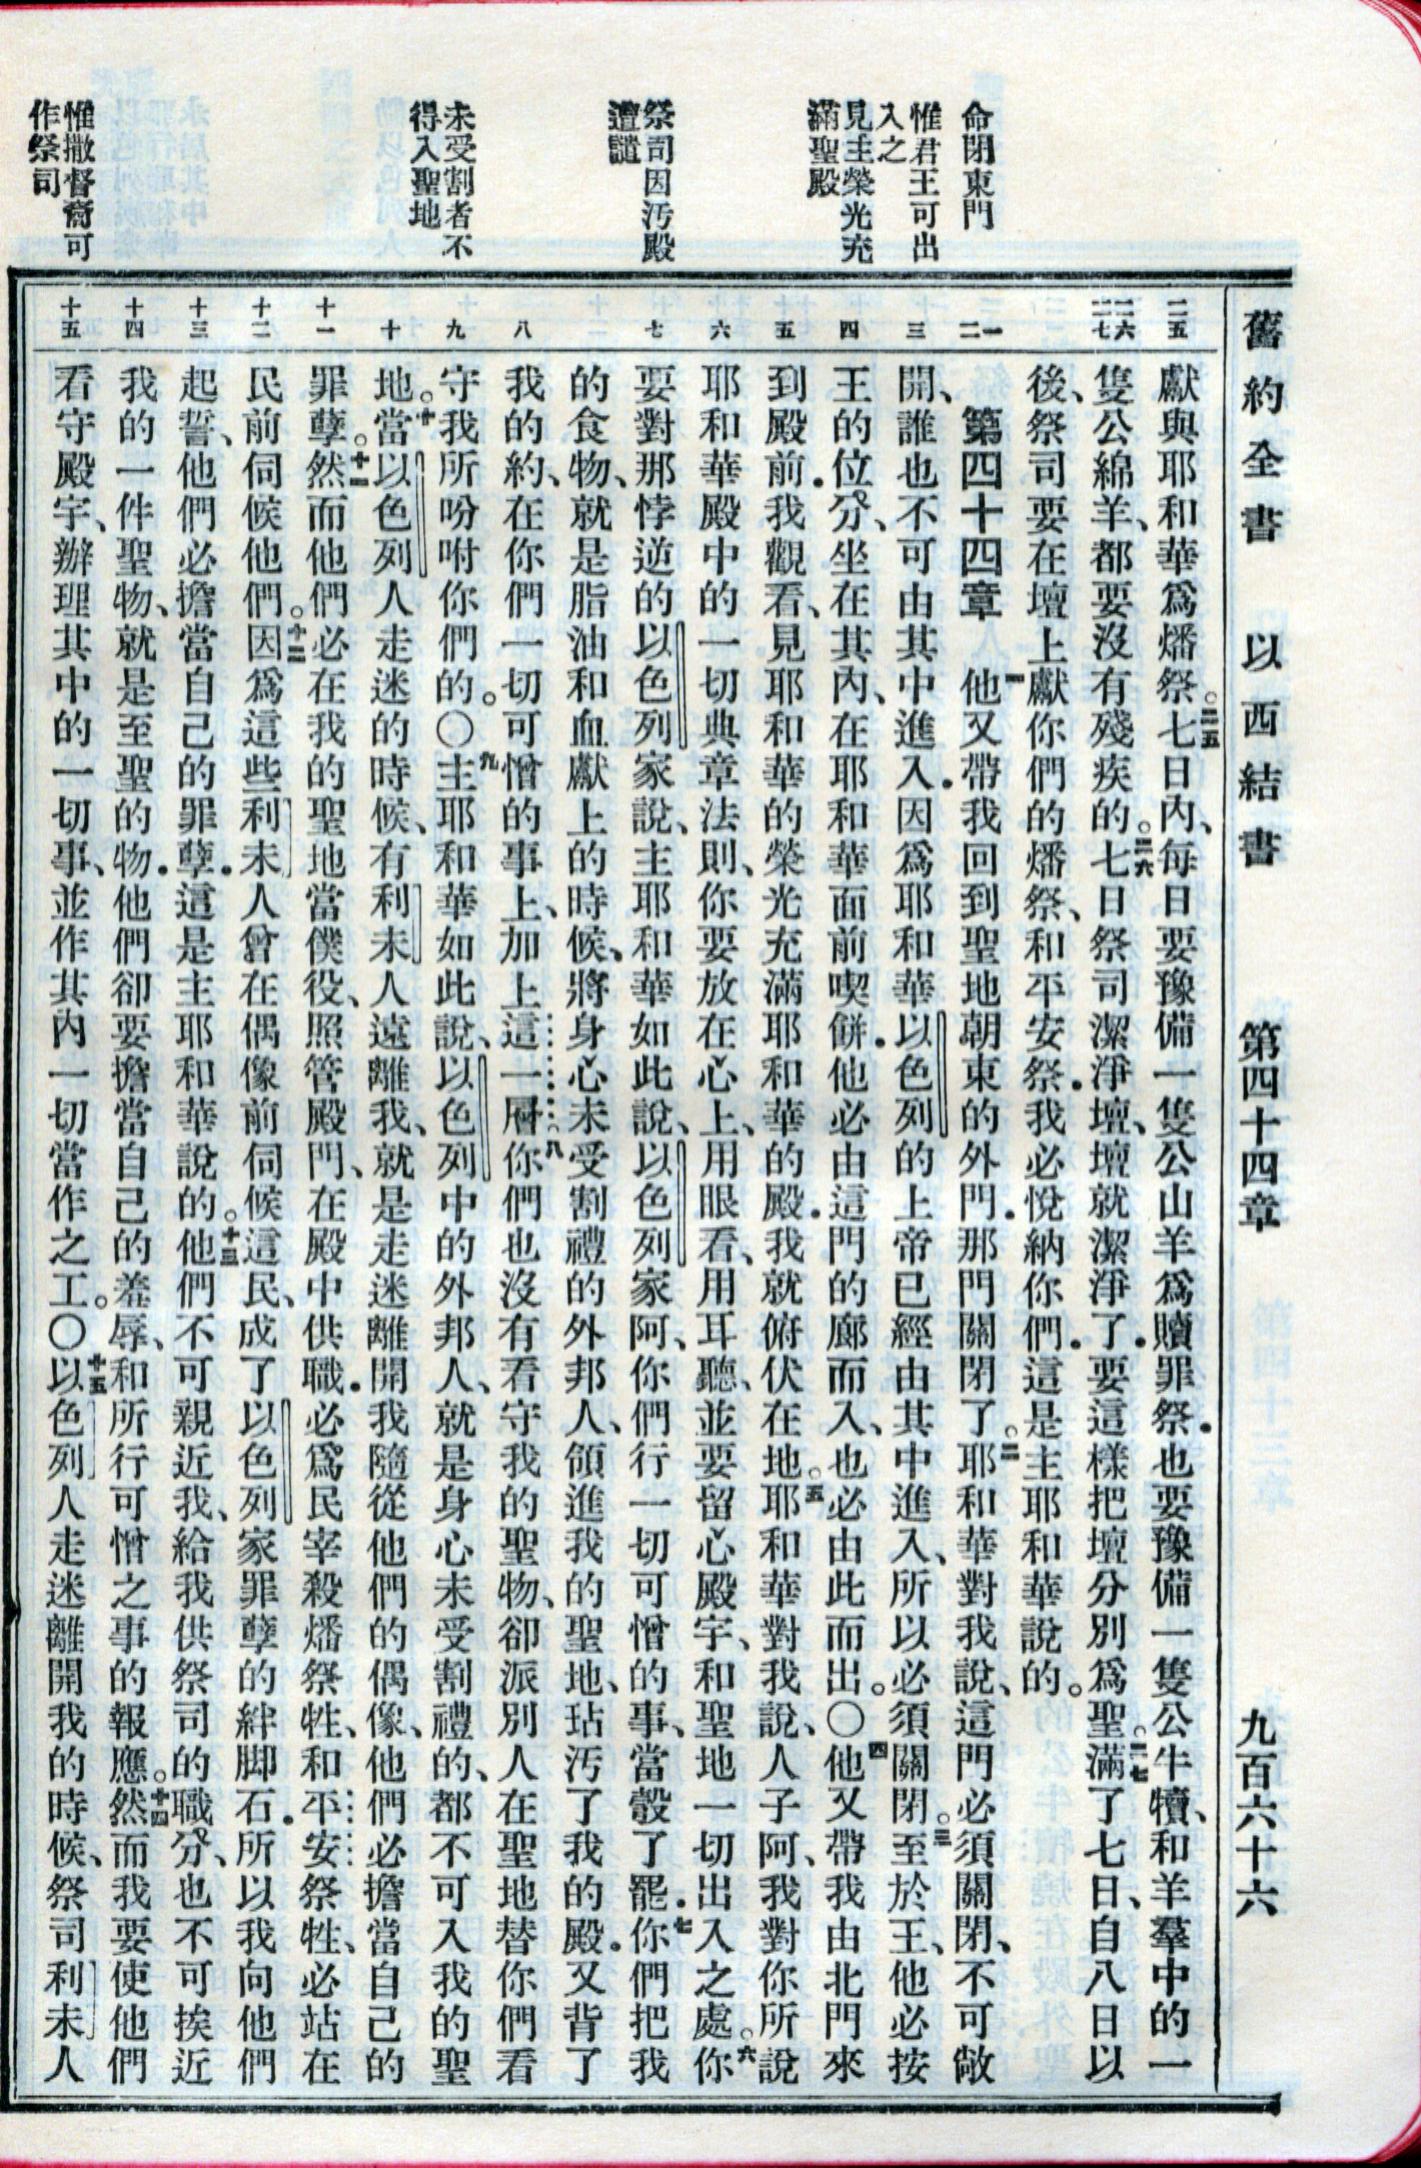 舊約全書 以西結書 第四十四章 九百六十六
命閉東門
惟君王可出
入之
見主榮光充
滿聖殿
祭司因污殿
遭譴
未受割者不
得入聖地
惟撒督裔可
作祭司
二五
二六
二七
一
二
三
四
五
六
七
八
九
十
十一
十二
十三
十四
十五
獻與耶和華爲燔祭。二五七日內、每日要豫備一隻公山羊爲贖罪祭．也要豫備一隻公牛犢、和羊羣中的一
隻公綿羊、都要沒有殘疾的。二六七日祭司潔淨壇、壇就潔淨了．要這樣把壇分別爲聖。二七滿了七日、自八日以
後、祭司要在壇上獻你們的燔祭、和平安祭．我必悅納你們．這是主耶和華說的。
第四十四章 一他又帶我回到聖地朝東的外門．那門關閉了。二耶和華對我說、這門必須關閉、不可敞
開、誰也不可由其中進入．因爲耶和華以色列的上帝已經由其中進入、所以必須關閉。三至於王、他必按
王的位分、坐在其內、在耶和華面前喫餅．他必由這門的廊而入、也必由此而出。〇四他又帶我由北門來
到殿前．我觀看、見耶和華的榮光充滿耶和華的殿．我就俯伏在地。五耶和華對我說、人子阿、我對你所說
耶和華殿中的一切典章法則、你要放在心上、用眼看、用耳聽、並要留心殿宇、和聖地一切出入之處。六你
要對那悖逆的以色列家說、主耶和華如此說、以色列家阿、你們行一切可憎的事、當彀了罷．七你們把我
的食物、就是脂油和血獻上的時候、將身心未受割禮的外邦人、領進我的聖地、玷污了我的殿．又背了
我的約、在你們一切可憎的事上、加上這一層。八你們也沒有看守我的聖物、卻派別人在聖地替你們看
守我所吩咐你們的。〇九主耶和華如此說、以色列中的外邦人、就是身心未受割禮的、都不可入我的聖
地。十當以色列人走迷的時候、有利未人遠離我、就是走迷離開我隨從他們的偶像、他們必擔當自己的
罪孽。十一然而他們必在我的聖地當僕役、照管殿門、在殿中供職．必爲民宰殺燔祭牲、和平安祭牲、必站在
民前伺候他們。十二因爲這些利未人曾在偶像前伺候這民、成了以色列家罪孽的絆脚石．所以我向他們
起誓、他們必擔當自己的罪孽．這是主耶和華說的。十三他們不可親近我、給我供祭司的職分、也不可挨近
我的一件聖物、就是至聖的物．他們卻要擔當自己的羞辱、和所行可憎之事的報應。十四然而我要使他們
看守殿宇、辦理其中的一切事、並作其內一切當作之工。〇十五以色列人走迷離開我的時候、祭司利未人